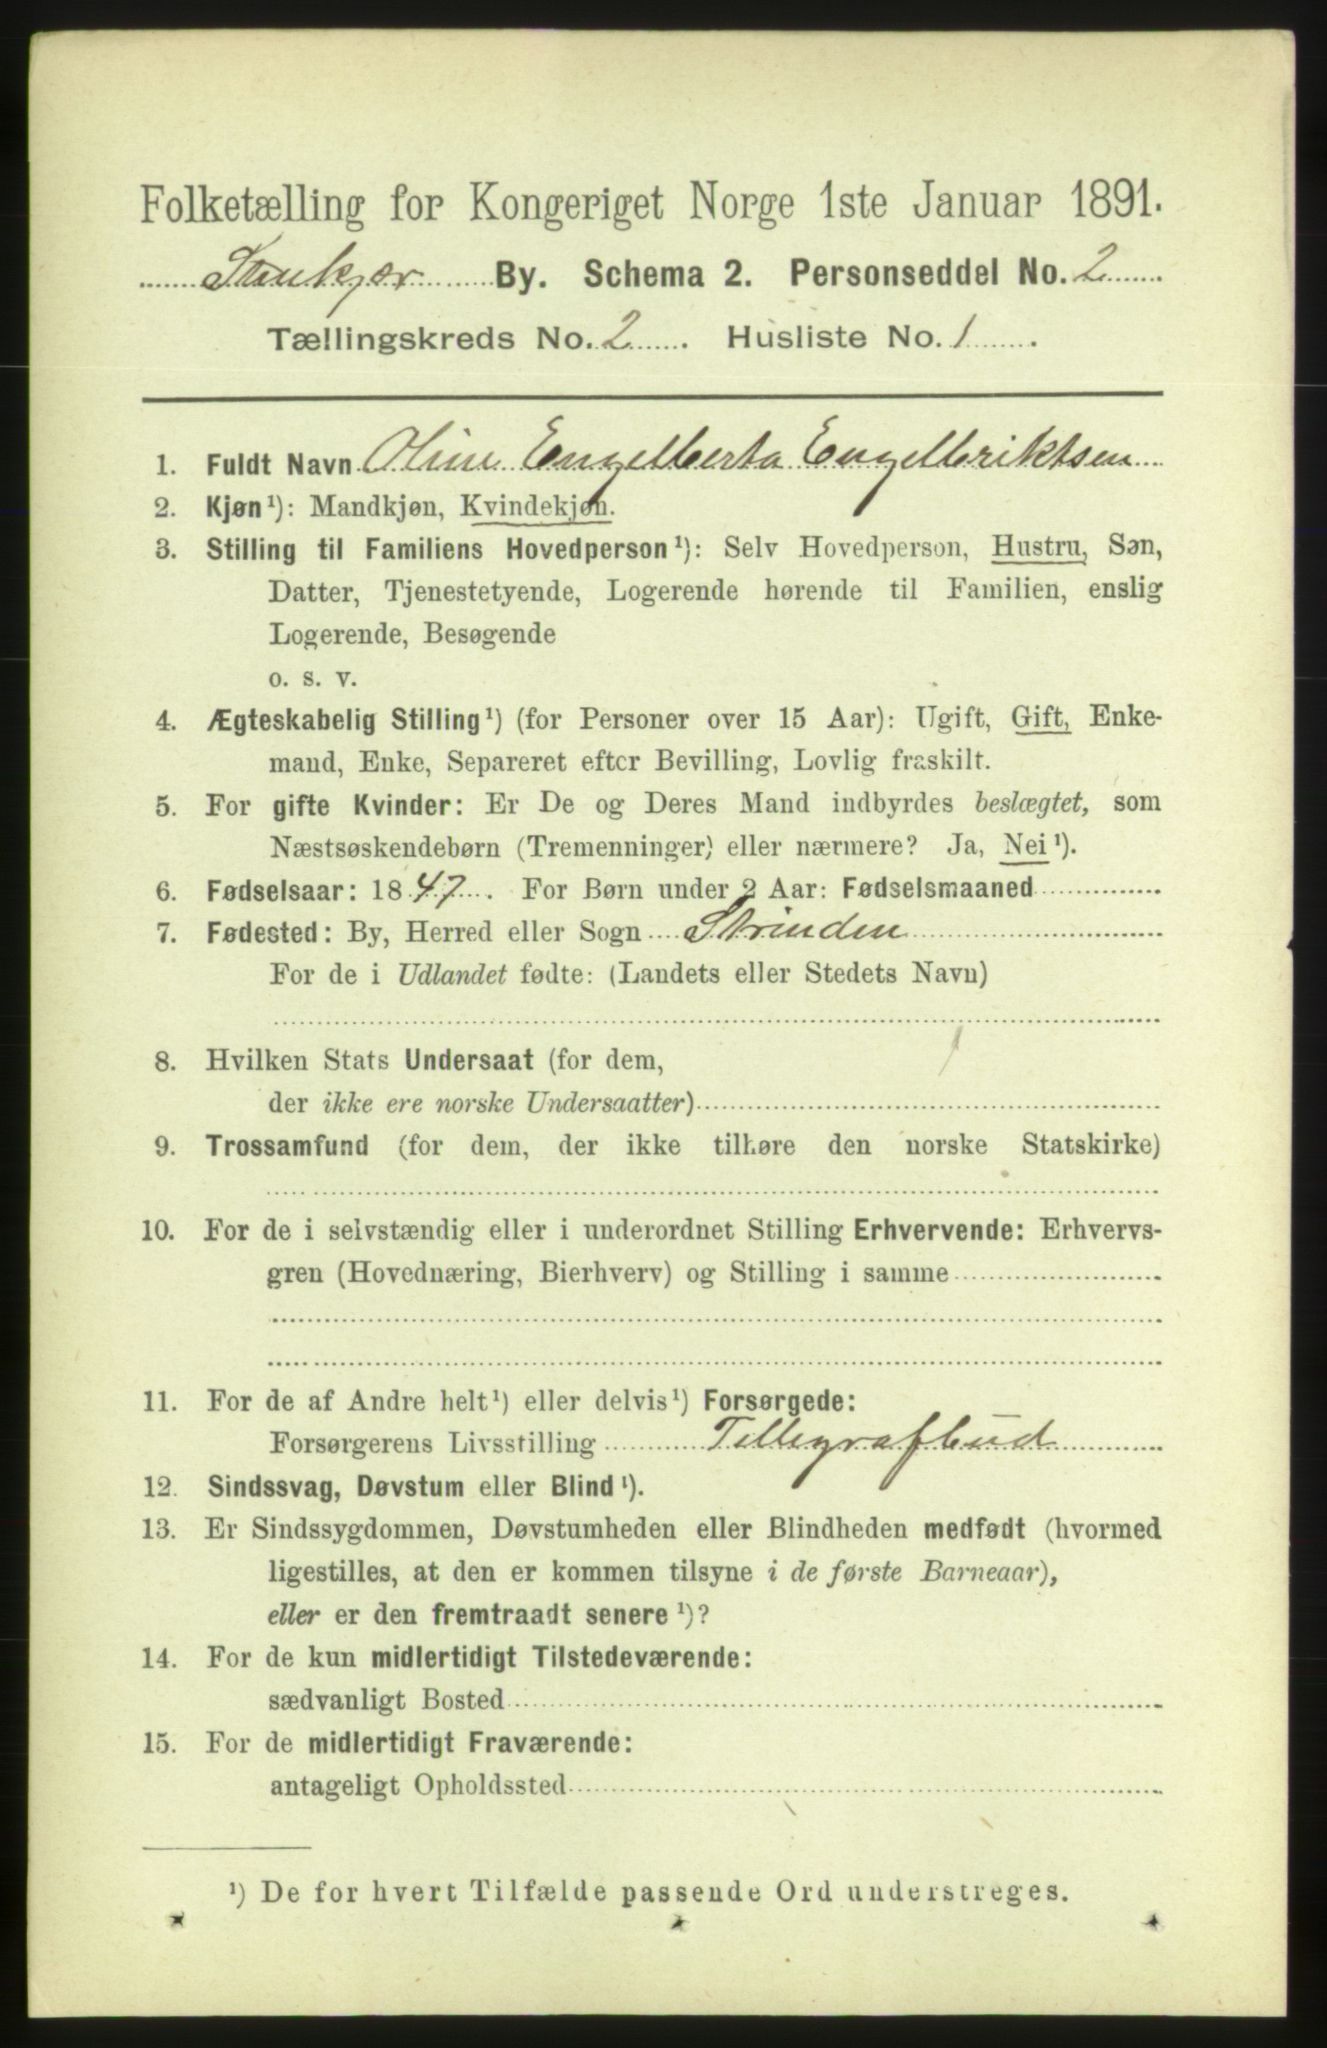 Folketælling for Kongeriget Norge 1ste Januar 1891.
Stenkjær By. Schema 2. Personseddel No. 2
Tællingskreds No. 2. Husliste No. 1.
1. Fuldt Navn Oline Engelberta Engelbriktsen
2. Kjøn¹): Mandkjøn, Kvindekjøn.
3. Stilling til Familiens Hovedperson¹): Selv Hovedperson, Hustru, Søn,
Datter, Tjenestetyende, Logerende hørende til Familien, enslig
Logerende, Besøgende
o. s. v.
4. Ægteskabelig Stilling¹) (for Personer over 15 Aar): Ugift, Gift, Enke-
mand, Enke, Separeret efter Bevilling, Lovlig fraskilt.
5. For gifte Kvinder: Er De og Deres Mand indbyrdes beslægtet, som
Næstsøskendebørn (Tremenninger) eller nærmere? Ja, Nei¹).
6. Fødselsaar: 1847. For Børn under 2 Aar: Fødselsmaaned
7. Fødested: By, Herred eller Sogn Strinden
For de i Udlandet fødte: (Landets eller Stedets Navn)
8. Hvilken Stats Undersaat (for dem,
der ikke ere norske Undersaatter)
9. Trossamfund (for dem, der ikke tilhøre den norske Statskirke)
10. For de i selvstændig eller i underordnet Stilling Erhvervende: Erhvervs-
gren (Hovednæring, Bierhverv) og Stilling i samme
11. For de af Andre helt¹) eller delvis¹) Forsørgede:
Forsørgerens Livsstilling Tellegrafbud
12. Sindssvag, Døvstum eller Blind¹).
13. Er Sindssygdommen, Døvstumheden eller Blindheden medfødt (hvormed
ligestilles, at den er kommen tilsyne i de første Barneaar),
eller er den fremtraadt senere¹)?
14. For de kun midlertidigt Tilstedeværende:
sædvanligt Bosted
15. For de midlertidigt Fraværende:
antageligt Opholdssted
¹) De for hvert Tilfælde passende Ord understreges.